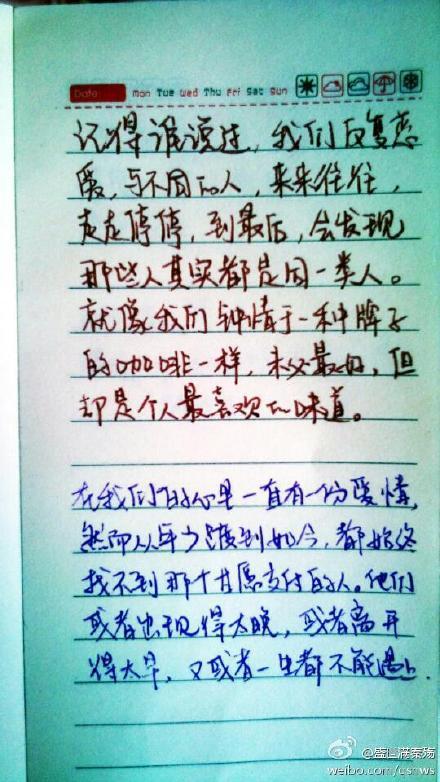 Date: Mon Tue Wed Thu Fri Sat Sun
记得谁说过，我们反复恋
爱，与不同的人，来来往往，
走走停停，到最后，会发现
那些人其实都是同一类人。
就像我们钟情于一种牌子
的咖啡一样，未必最好，但
却是个人最喜欢的味道。
在我们的心里一直有一份爱情，
然而从年少时到如今，都始终
找不到那个甘愿交付的人。他们
或者出现得太晚，或者离开
得太早，又或者一生都不能遇上。
@盛世满秦殇
weibo.com/csnws